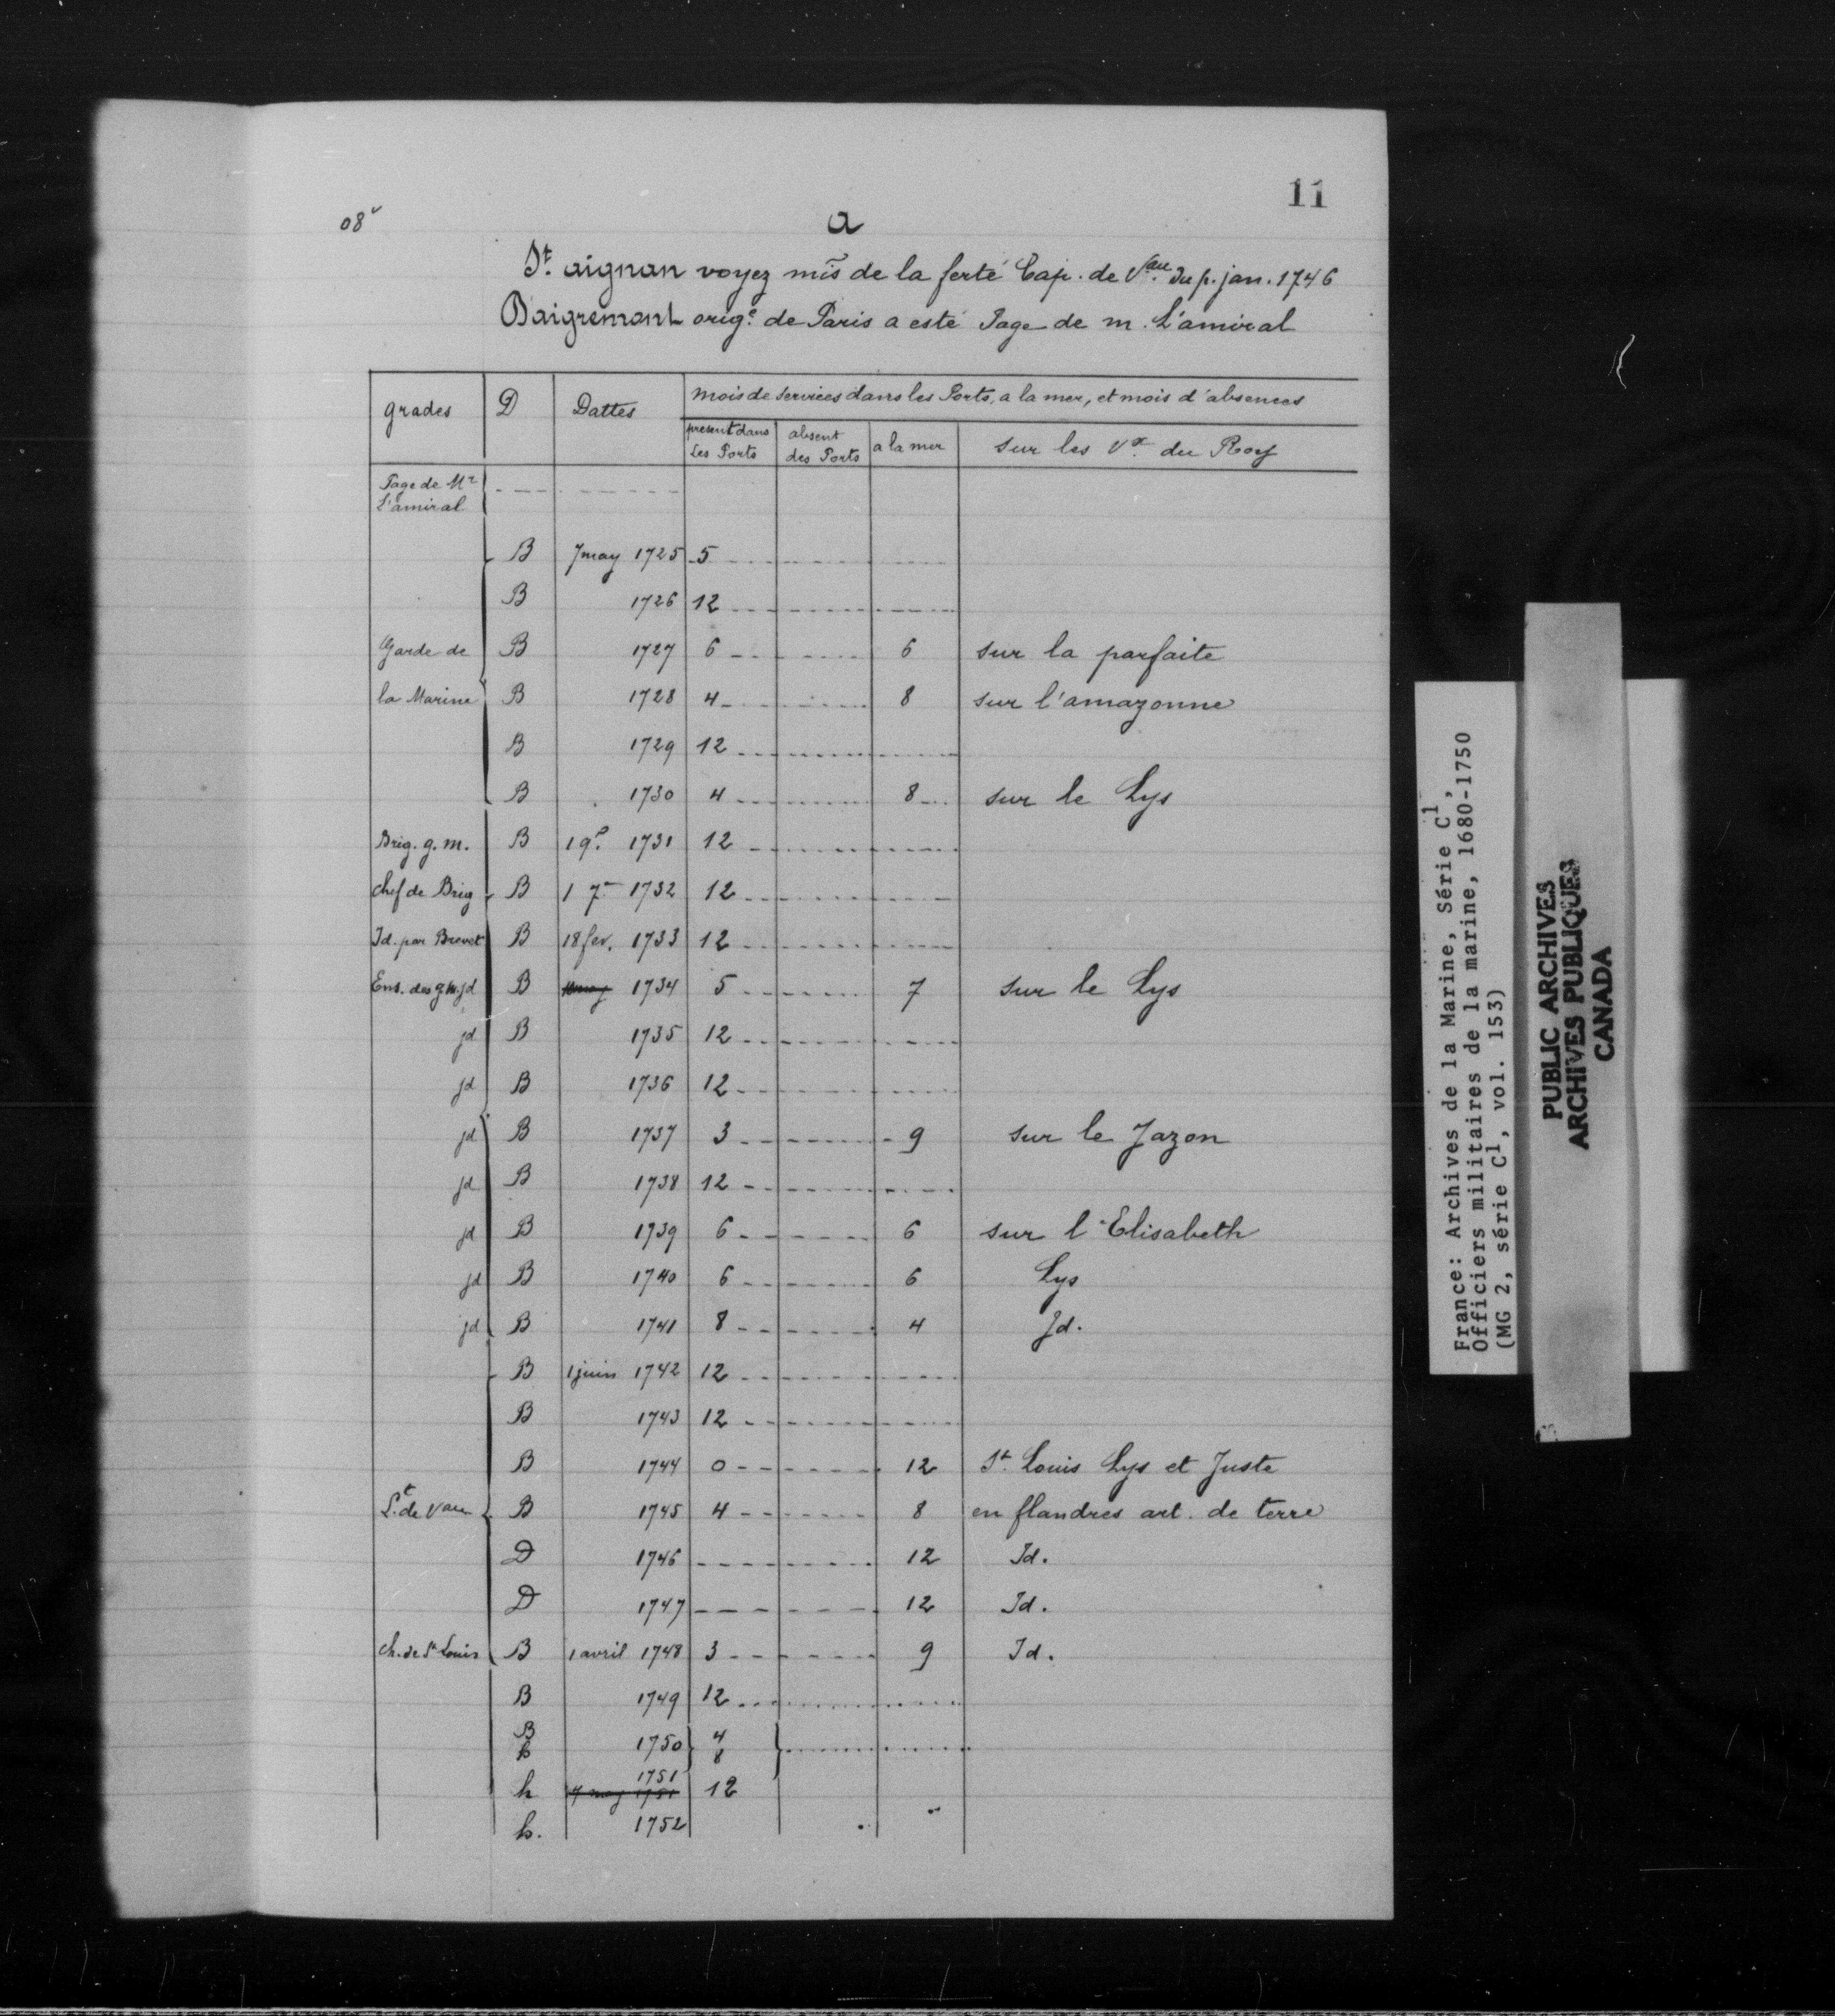 11
08v
a
St. aignan voyez mis de la ferté Cap. de Vau. du p. jan. 1746
Daigremont orige. de Paris a esté Page de m. L'amiral
grades D Dattes mois de services dans les Ports, a la mer, et mois d'absences
present dans les Ports absent des Ports a la mer sur les Vx. du Roy
Page de Mr
L'amiral
B 7 may 1725 5
B 1726 12
Garde de B 1727 6 6 sur la parfaite
la Marine B 1728 4 8 sur l'amazonne
B 1729 12
B 1730 4 8 sur le Lys
Brig. g. m. B 1 9. 1731 12
chef de Brig B 1 7. 1732 12
Id. par Brevet B 18 fev. 1733 12
Ens. des g.M. jd B 1734 5 7 sur le Lys
jd B 1735 12
jd B 1736 12
jd B 1737 3 9 sur le Jazon
jd B 1738 12
jd B 1739 6 6 sur l'Elisabeth
jd B 1740 6 6 Lys
jd B 1741 8 4 Jd.
B 1 juin 1742 12
B 1743 12
B 1744 0 12 St. Louis Lys et Juste
Lt. de Vau B 1745 4 8 en flandres art. de terre
D 1746 12 Id.
D 1747 12 Id.
Ch. de St Louis B 1 avril 1748 3 9 Id.
B 1749 12
B 1750 4
h 8
1751
h 7 may 1751 12
h. 1752
France: Archives de la Marine, Série C1,
Officiers militaires de la marine, 1680-1750
(MG 2, série C1, vol. 153)
PUBLIC ARCHIVES
ARCHIVES PUBLIQUES
CANADA